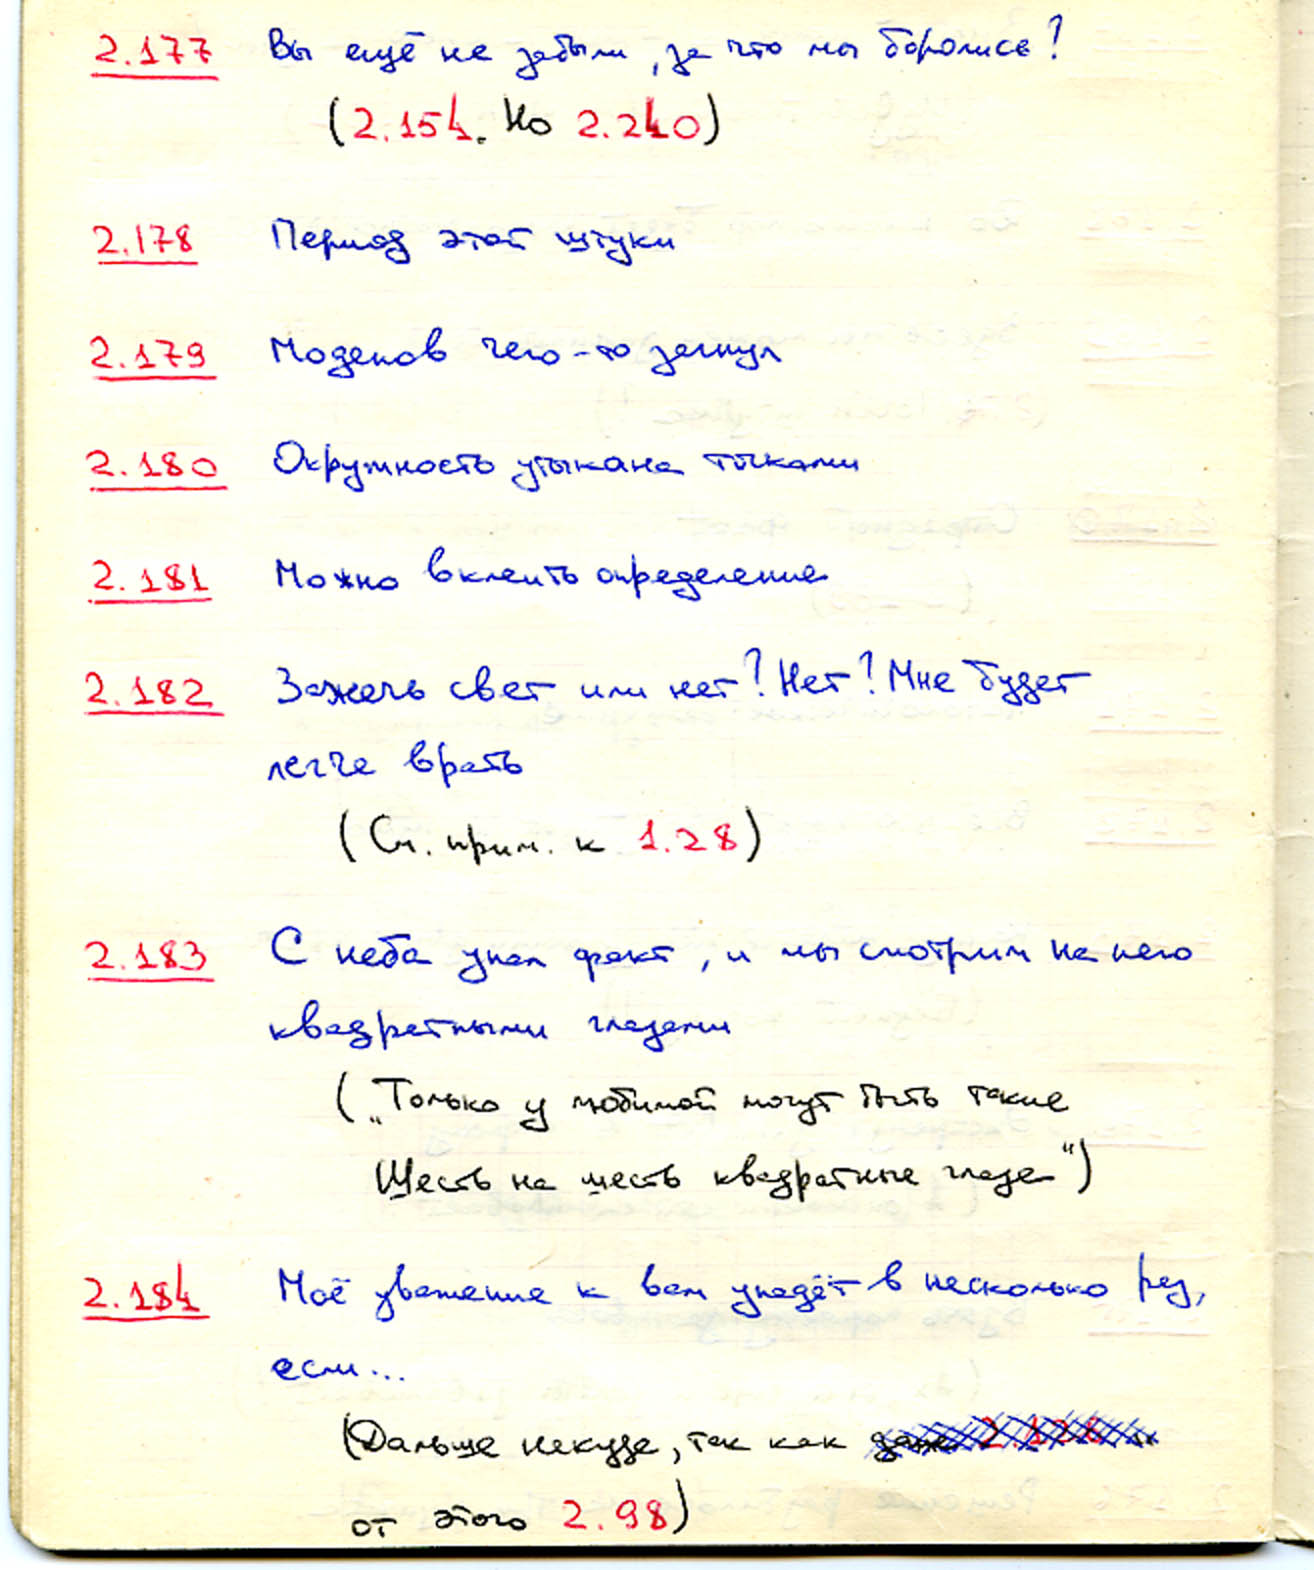 2.177 Вы ещё не забыли, за что мы боролись?
(2.154. Но 2.240)
2.178 Период этой штуки
2.179 Моденов чего-то загнул
2.180 Окружность утыкана точками
2.181 Можно вклеить определение
2.182 Зажечь свет или нет? Нет? Мне будет
легче врать
(См. прим. к 1.28)
2.183 С неба упал факт, и мы смотрим на него
квадратными глазами
(„Только у любимой могут быть такие
Шесть на шесть квадратные глаза“)
2.184 Моё уважение к вам упадёт в несколько раз,
если...
(Дальше некуда, так как даже
от этого 2.98)